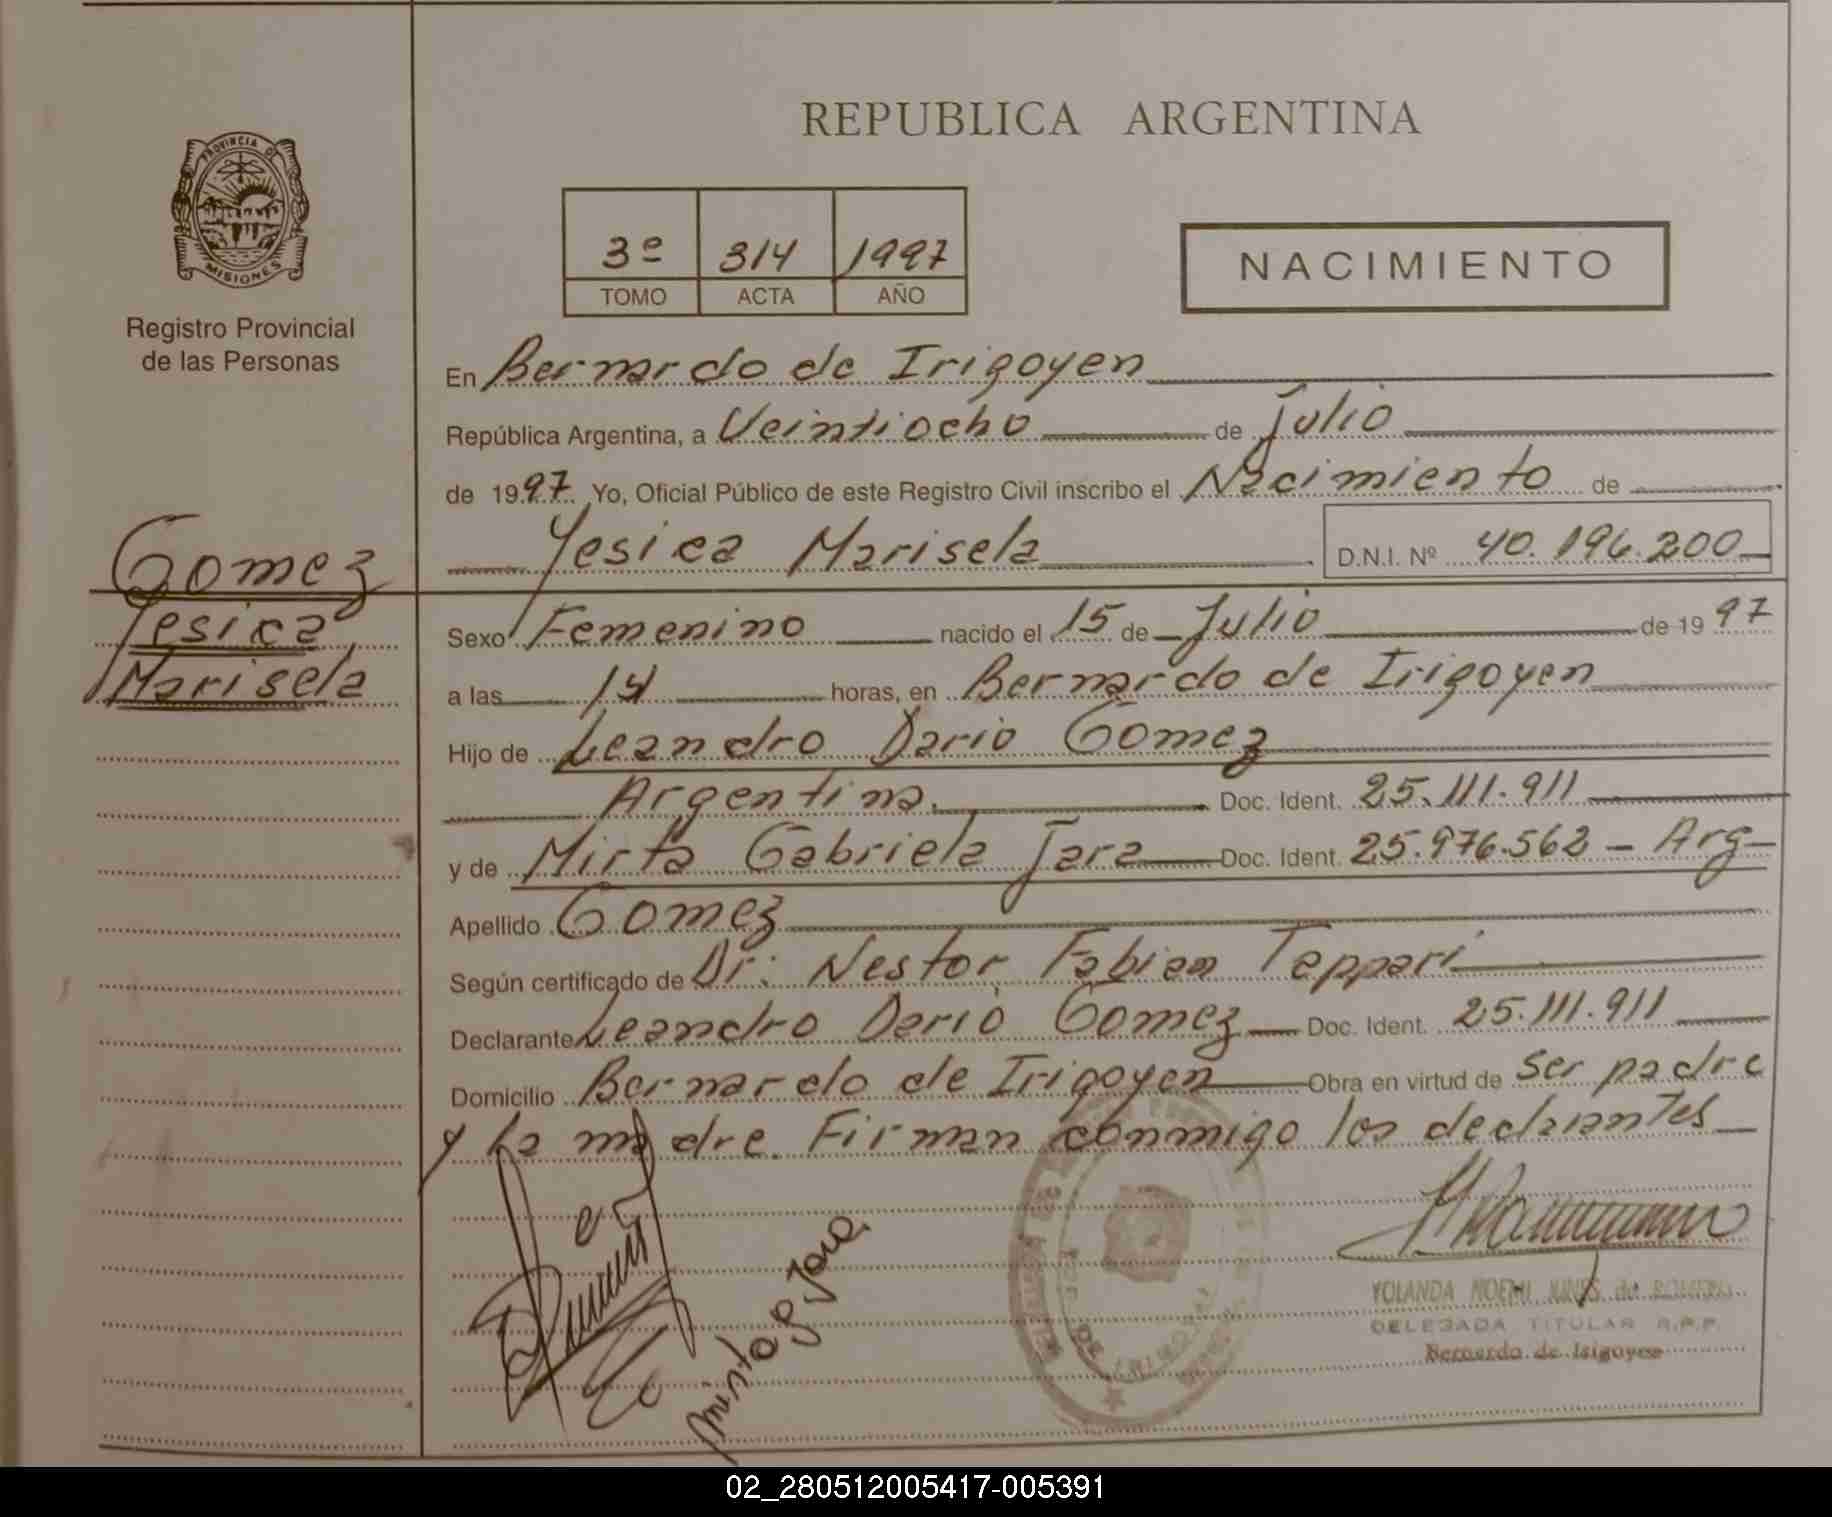 REPUBLICA ARGENTINA
PROVINCIA DE
MISIONES
Registro Provincial
de las Personas
3º 314 1997
TOMO ACTA AÑO
NACIMIENTO
En Bernardo de Irigoyen
República Argentina, a Veintiocho de Julio
de 1997 Yo, Oficial Público de este Registro Civil inscribo el Nacimiento de
Yesica Marisela D.N.I. Nº 40.196.200
Gomez
Yesica
Marisela
Sexo Femenino nacido el 15 de Julio de 1997
a las 14 horas, en Bernardo de Irigoyen
Hijo de Leandro Dario Gomez
Argentina. Doc. Ident. 25.111.911
y de Mirta Gabriela Jara Doc. Ident. 25.976.562 - Arg-
Apellido Gomez
Según certificado de Dr: Nestor Fabian Teppari
Declarante Leandro Dario Gomez Doc. Ident. 25.111.911
Domicilio Bernardo de Irigoyen Obra en virtud de ser padre
y la madre. Firman conmigo los declarantes
Mirta G Jara
YOLANDA NOEMI JUNES de ROMERO
DELEGADA TITULAR R.P.P.
Bernardo de Irigoyen
02_280512005417-005391